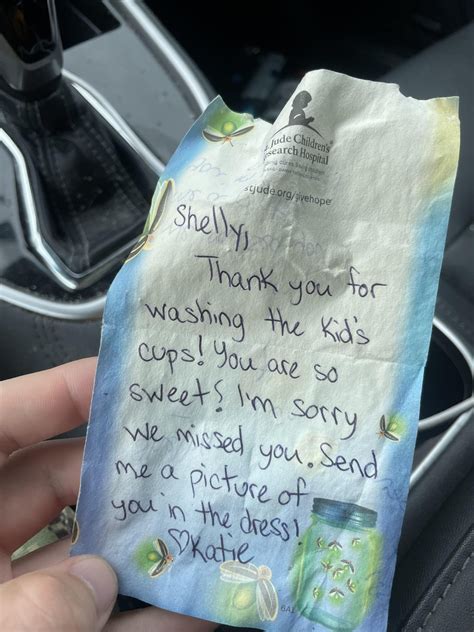 Jude Children's
Research Hospital
stjude.org/givehope
Shelly,
Thank you for
washing the kid's
cups! You are so
sweet! I'm sorry
we missed you. Send
me a picture of
you in the dress!
♡Katie